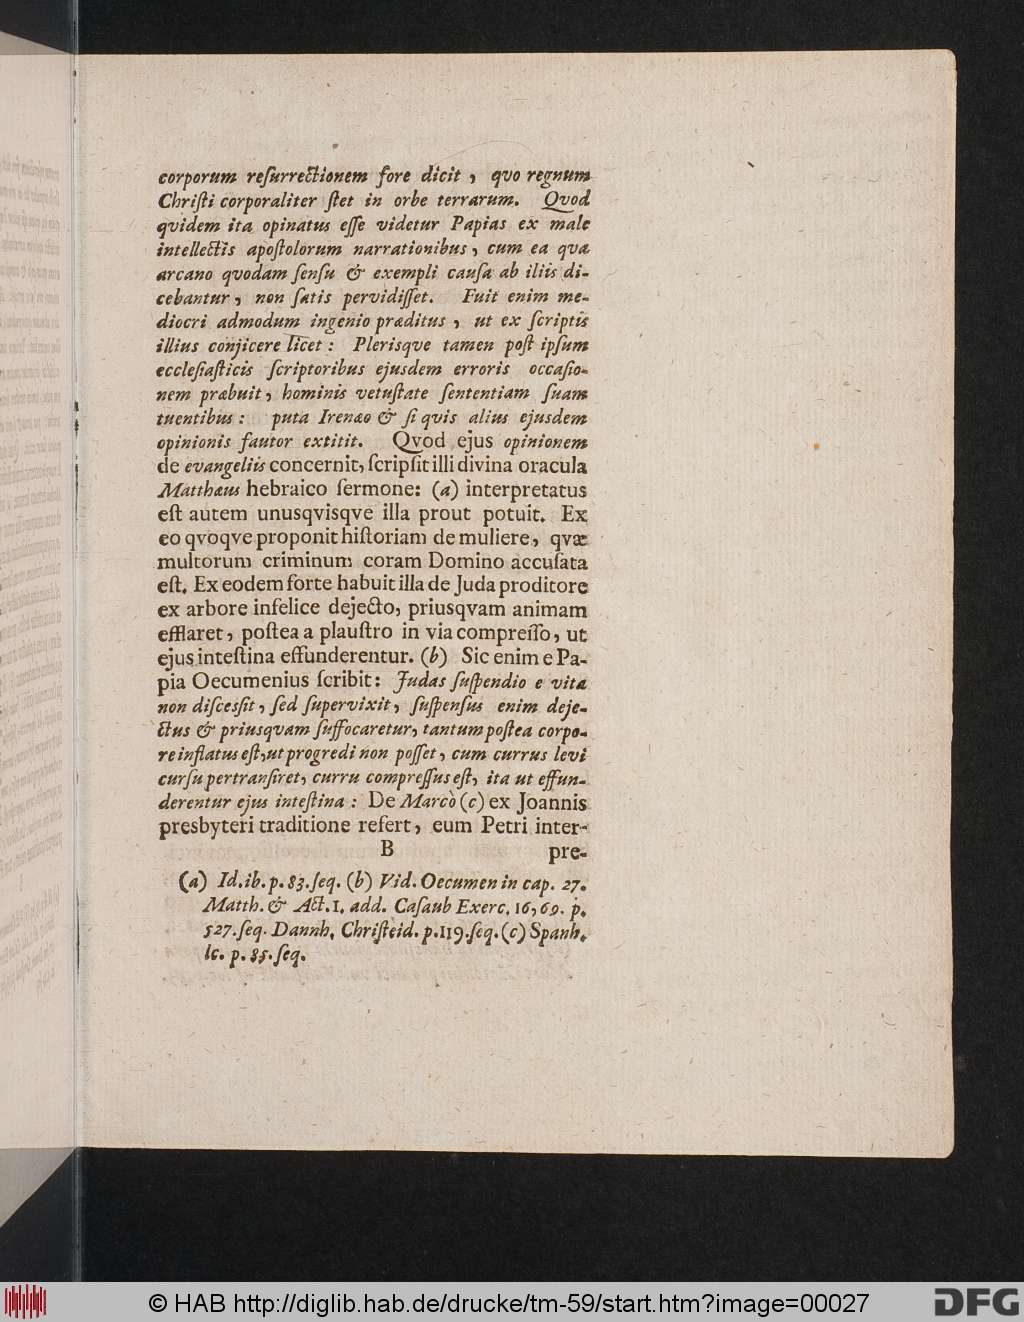 corporum reſurrectionem fore dicit, qvo regnum
Chriſti corporaliter ſtet in orbe terrarum. Qvod
qvidem ita opinatus eſſe videtur Papias ex male
intellectis apoſtolorum narrationibus, cum ea qvæ
arcano qvodam ſenſu & exempli cauſa ab iliis di-
cebantur, non ſatis pervidiſſet. Fuit enim me-
diocri admodum ingenio præditus, ut ex ſcriptis
illius conjicere licet: Plerisqve tamen poſt ipſum
eccleſiaſticis ſcriptoribus ejusdem erroris occaſio-
nem præbuit, hominis vetuſtate ſententiam ſuam
tuentibus: puta Irenæo & ſi qvis alius ejusdem
opinionis fautor extitit. Qvod ejus opinionem
de evangeliis concernit, ſcripſit illi divina oracula
Matthæus hebraico ſermone: (a) interpretatus
eſt autem unusqvisqve illa prout potuit. Ex
eo qvoqve proponit hiſtoriam de muliere, qvæ
multorum criminum coram Domino accuſata
eſt. Ex eodem forte habuit illa de Juda proditore
ex arbore infelice dejecto, priusqvam animam
efflaret, poſtea a plauſtro in via compreſſo, ut
ejus inteſtina effunderentur. (b) Sic enim e Pa-
pia Oecumenius ſcribit: Judas ſuſpendio e vita
non diſceſſit, ſed ſupervixit, ſuſpenſus enim deje-
ctus & priusqvam ſuffocaretur, tantum poſtea corpo-
re inflatus eſt, ut progredi non poſſet, cum currus levi
curſu pertranſiret, curru compreſſus eſt, ita ut effun-
derentur ejus inteſtina: De Marco (c) ex Joannis
presbyteri traditione refert, eum Petri inter-
B pre-
(a) Id. ib. p. 83. ſeq. (b) Vid. Oecumen in cap. 27.
Matth. & Act. 1. add. Caſaub Exerc. 16, 69. p.
527. ſeq. Dannh. Chriſteid. p. 119. ſeq. (c) Spanh.
lc. p. 85. ſeq.
© HAB http://diglib.hab.de/drucke/tm-59/start.htm?image=00027
DFG